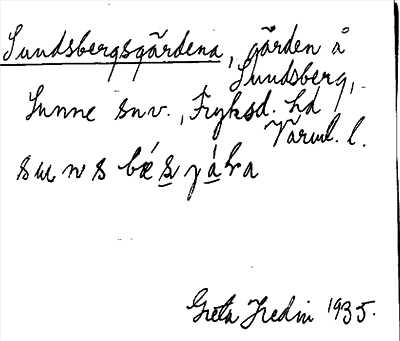 Sundsbergsgärdena, gärden å
Sundsberg,
Sunne snv., Fryksd. hd
Värml. l.
Greta Hedin 1935.